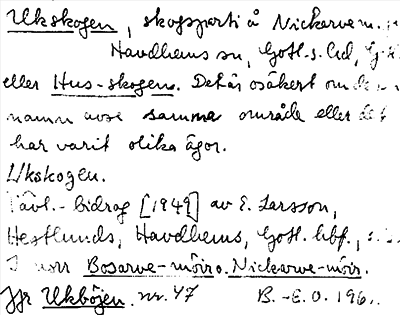 Ukskogen, skogsparti å Nickarve m.
Havdhems sn, Gotl. s. hd,
eller Hus-skogen. Det är osäkert om
namn avse samma område eller det
har varit olika ägor.
Ukskogen.
Tävl.-bidrag [1949] av E. Larsson,
Hestlunds, Havdhems, Gotl. hbf.,
I norr Bosarve-môiro. Nickarve-môir.
Jfr Ukböjen. nr. 47 B.-E.O. 196